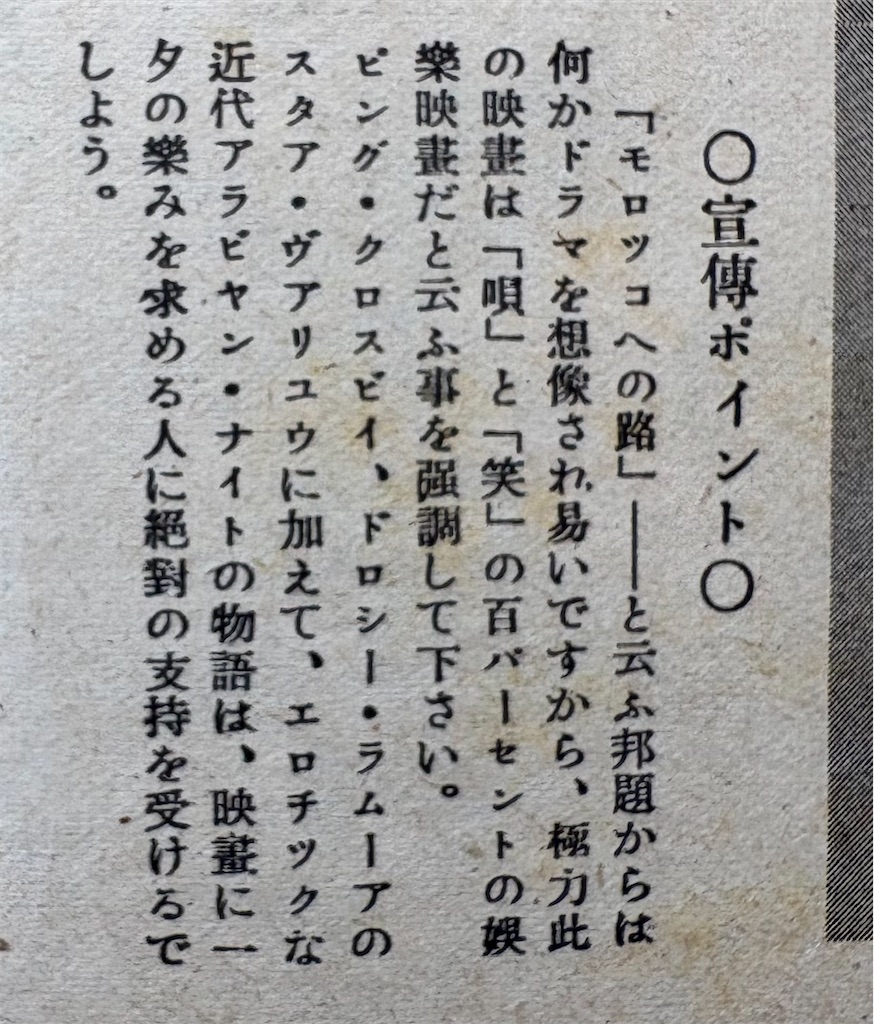 〇宣傳ポイント〇
「モロツコへの路」――と云ふ邦題からは
何かドラマを想像され易いですから、極力此
の映畫は「唄」と「笑」の百パーセントの娯
樂映畫だと云ふ事を强調して下さい。
ビング・クロスビイ、ドロシー・ラムーアの
スタア・ヴアリユウに加えて、エロチツクな
近代アラビヤン・ナイトの物語は、映畫に一
夕の樂みを求める人に絕對の支持を受けるで
しよう。